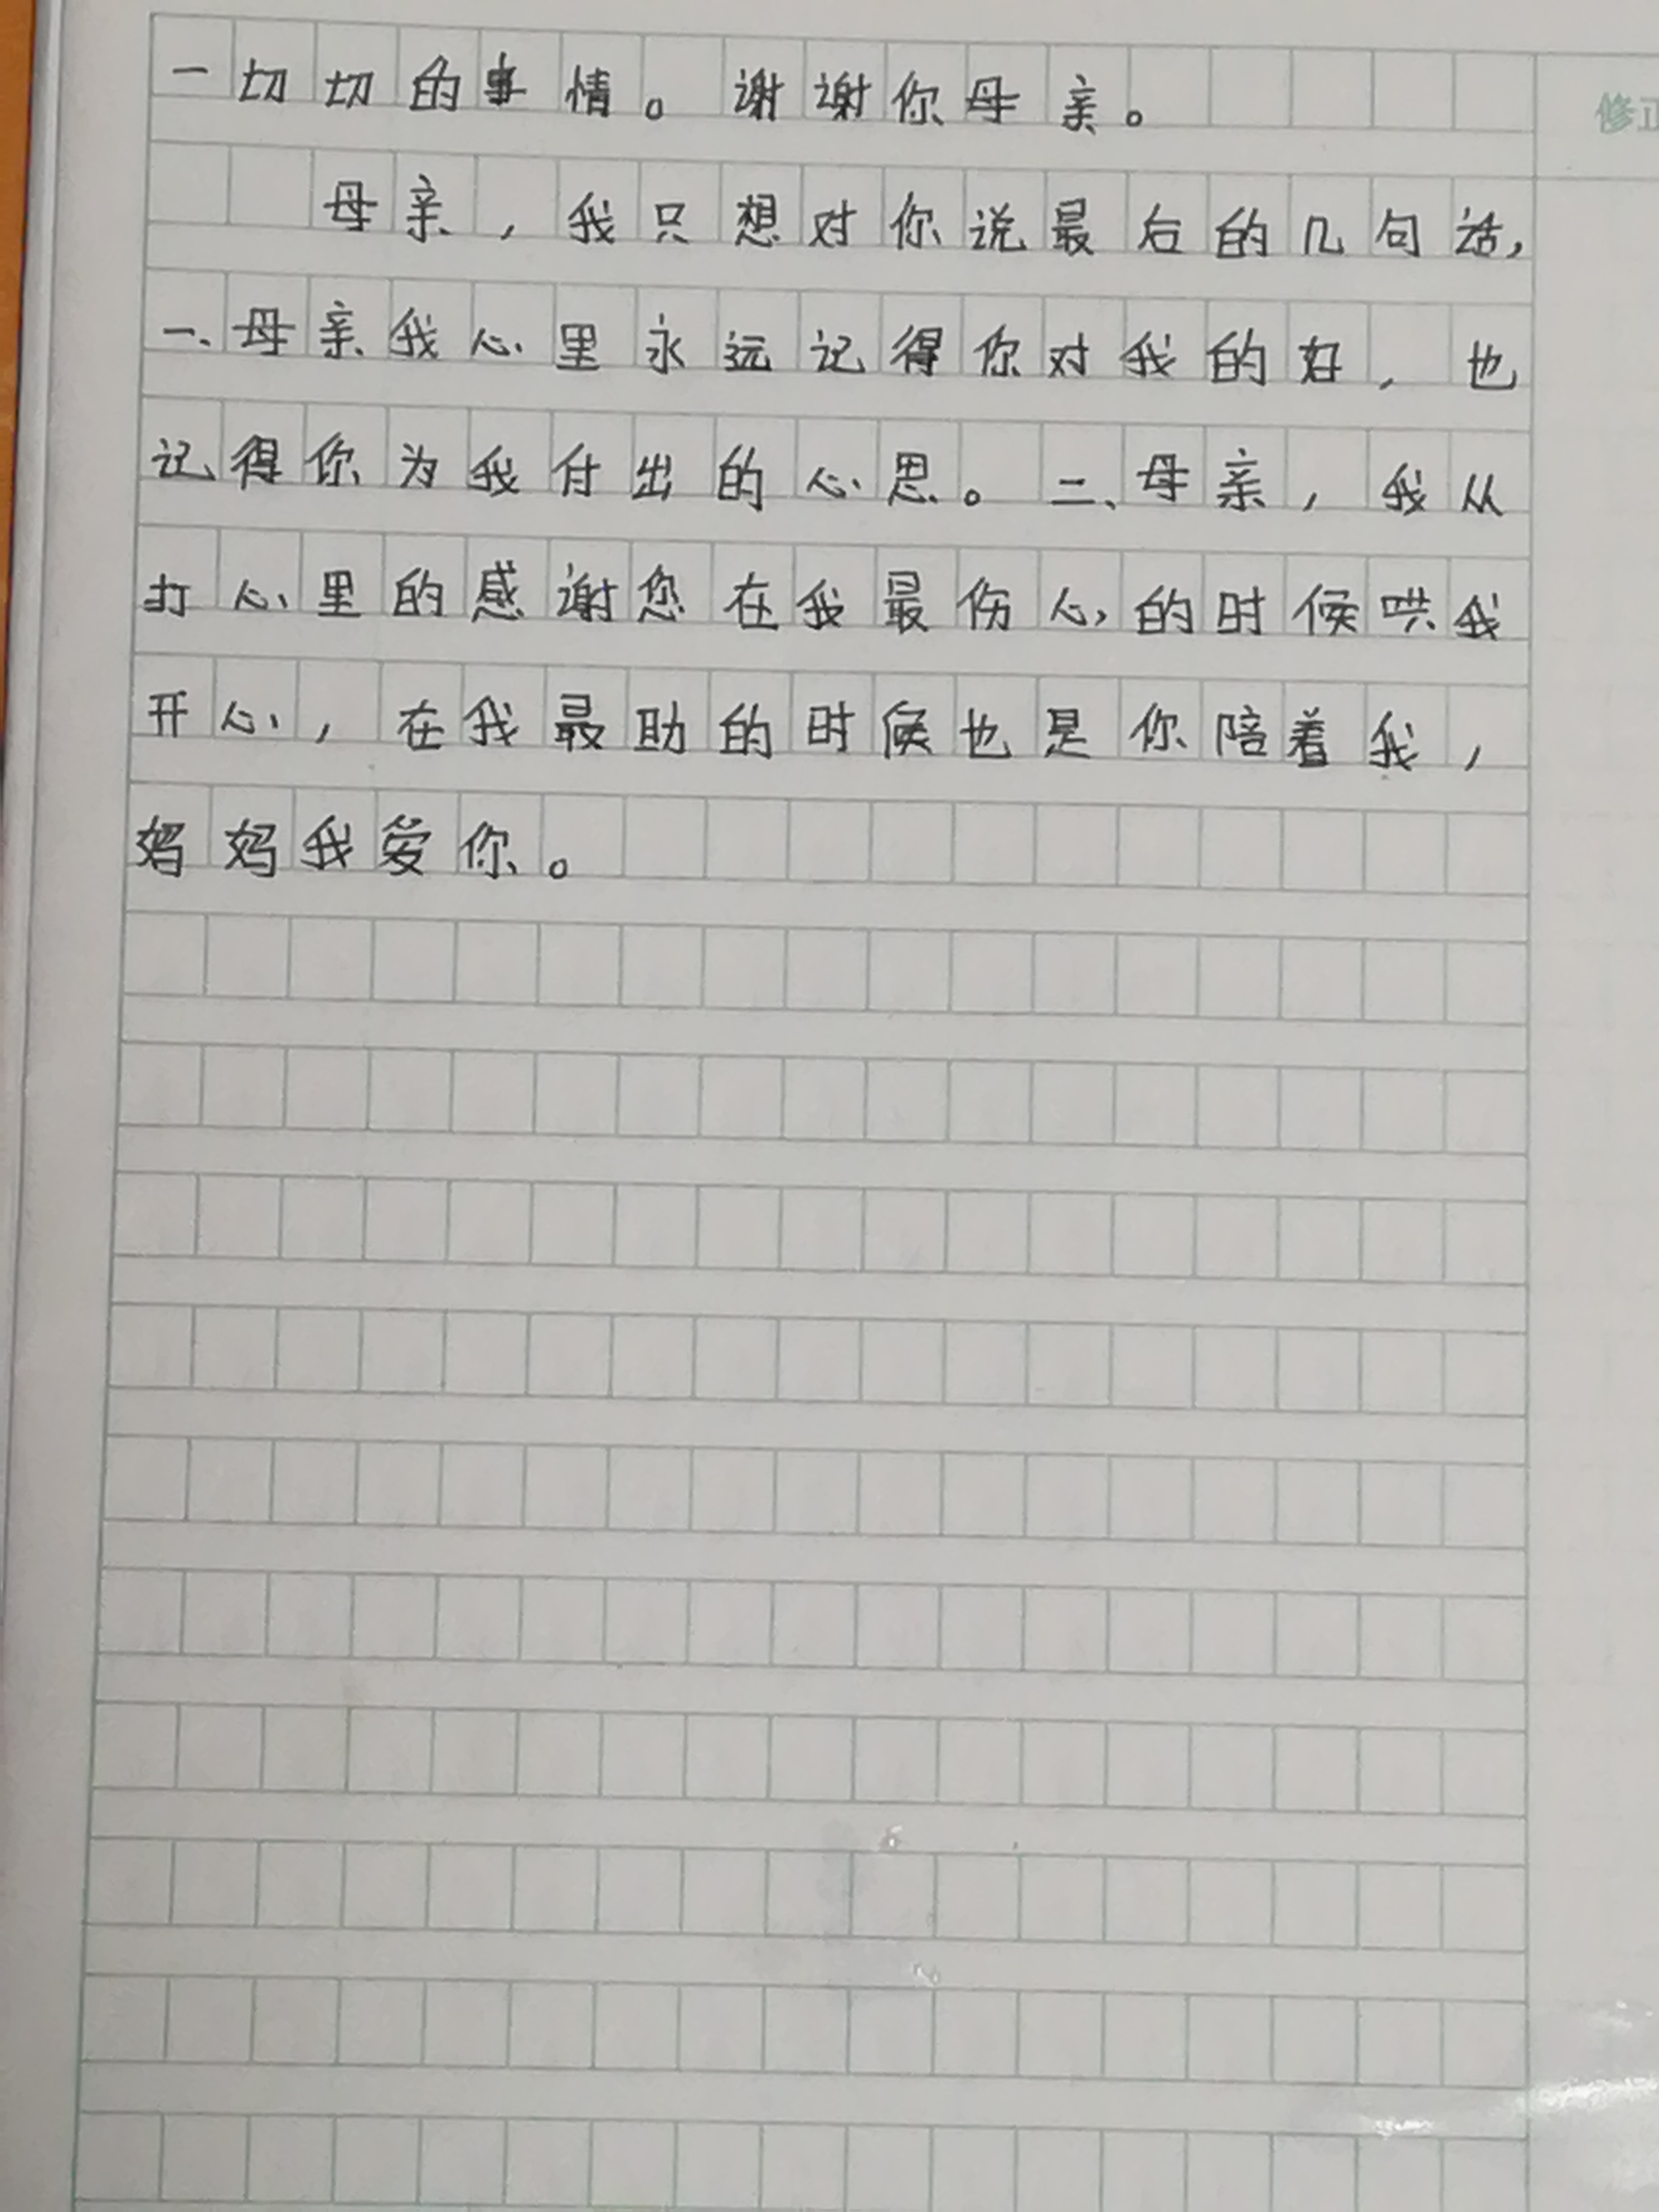 一切切的事情。谢谢你母亲。
修正
母亲，我只想对你说最后的几句话，
一、母亲我心里永远记得你对我的好，也
记得你为我付出的心思。二、母亲，我从
打心里的感谢您在我最伤心的时候哄我
开心，在我最助的时候也是你陪着我，
妈妈我爱你。